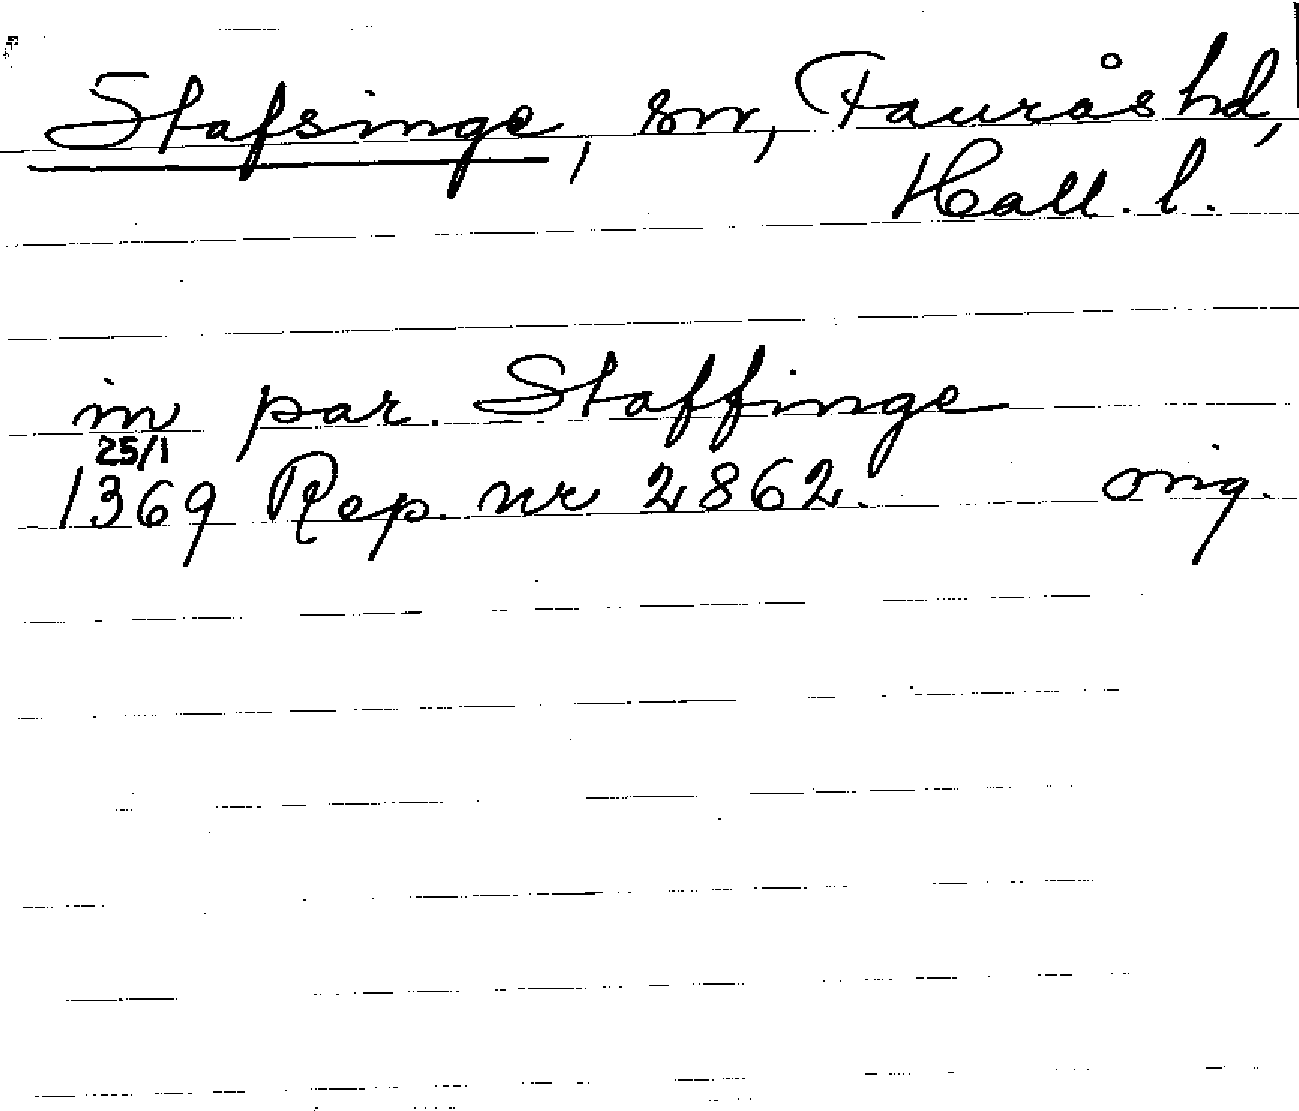 Stafsinge, sn, Faurås hd,
Hall. l.
in par. Staffinge
25/1
1369 Rep. nr 2862. orig.